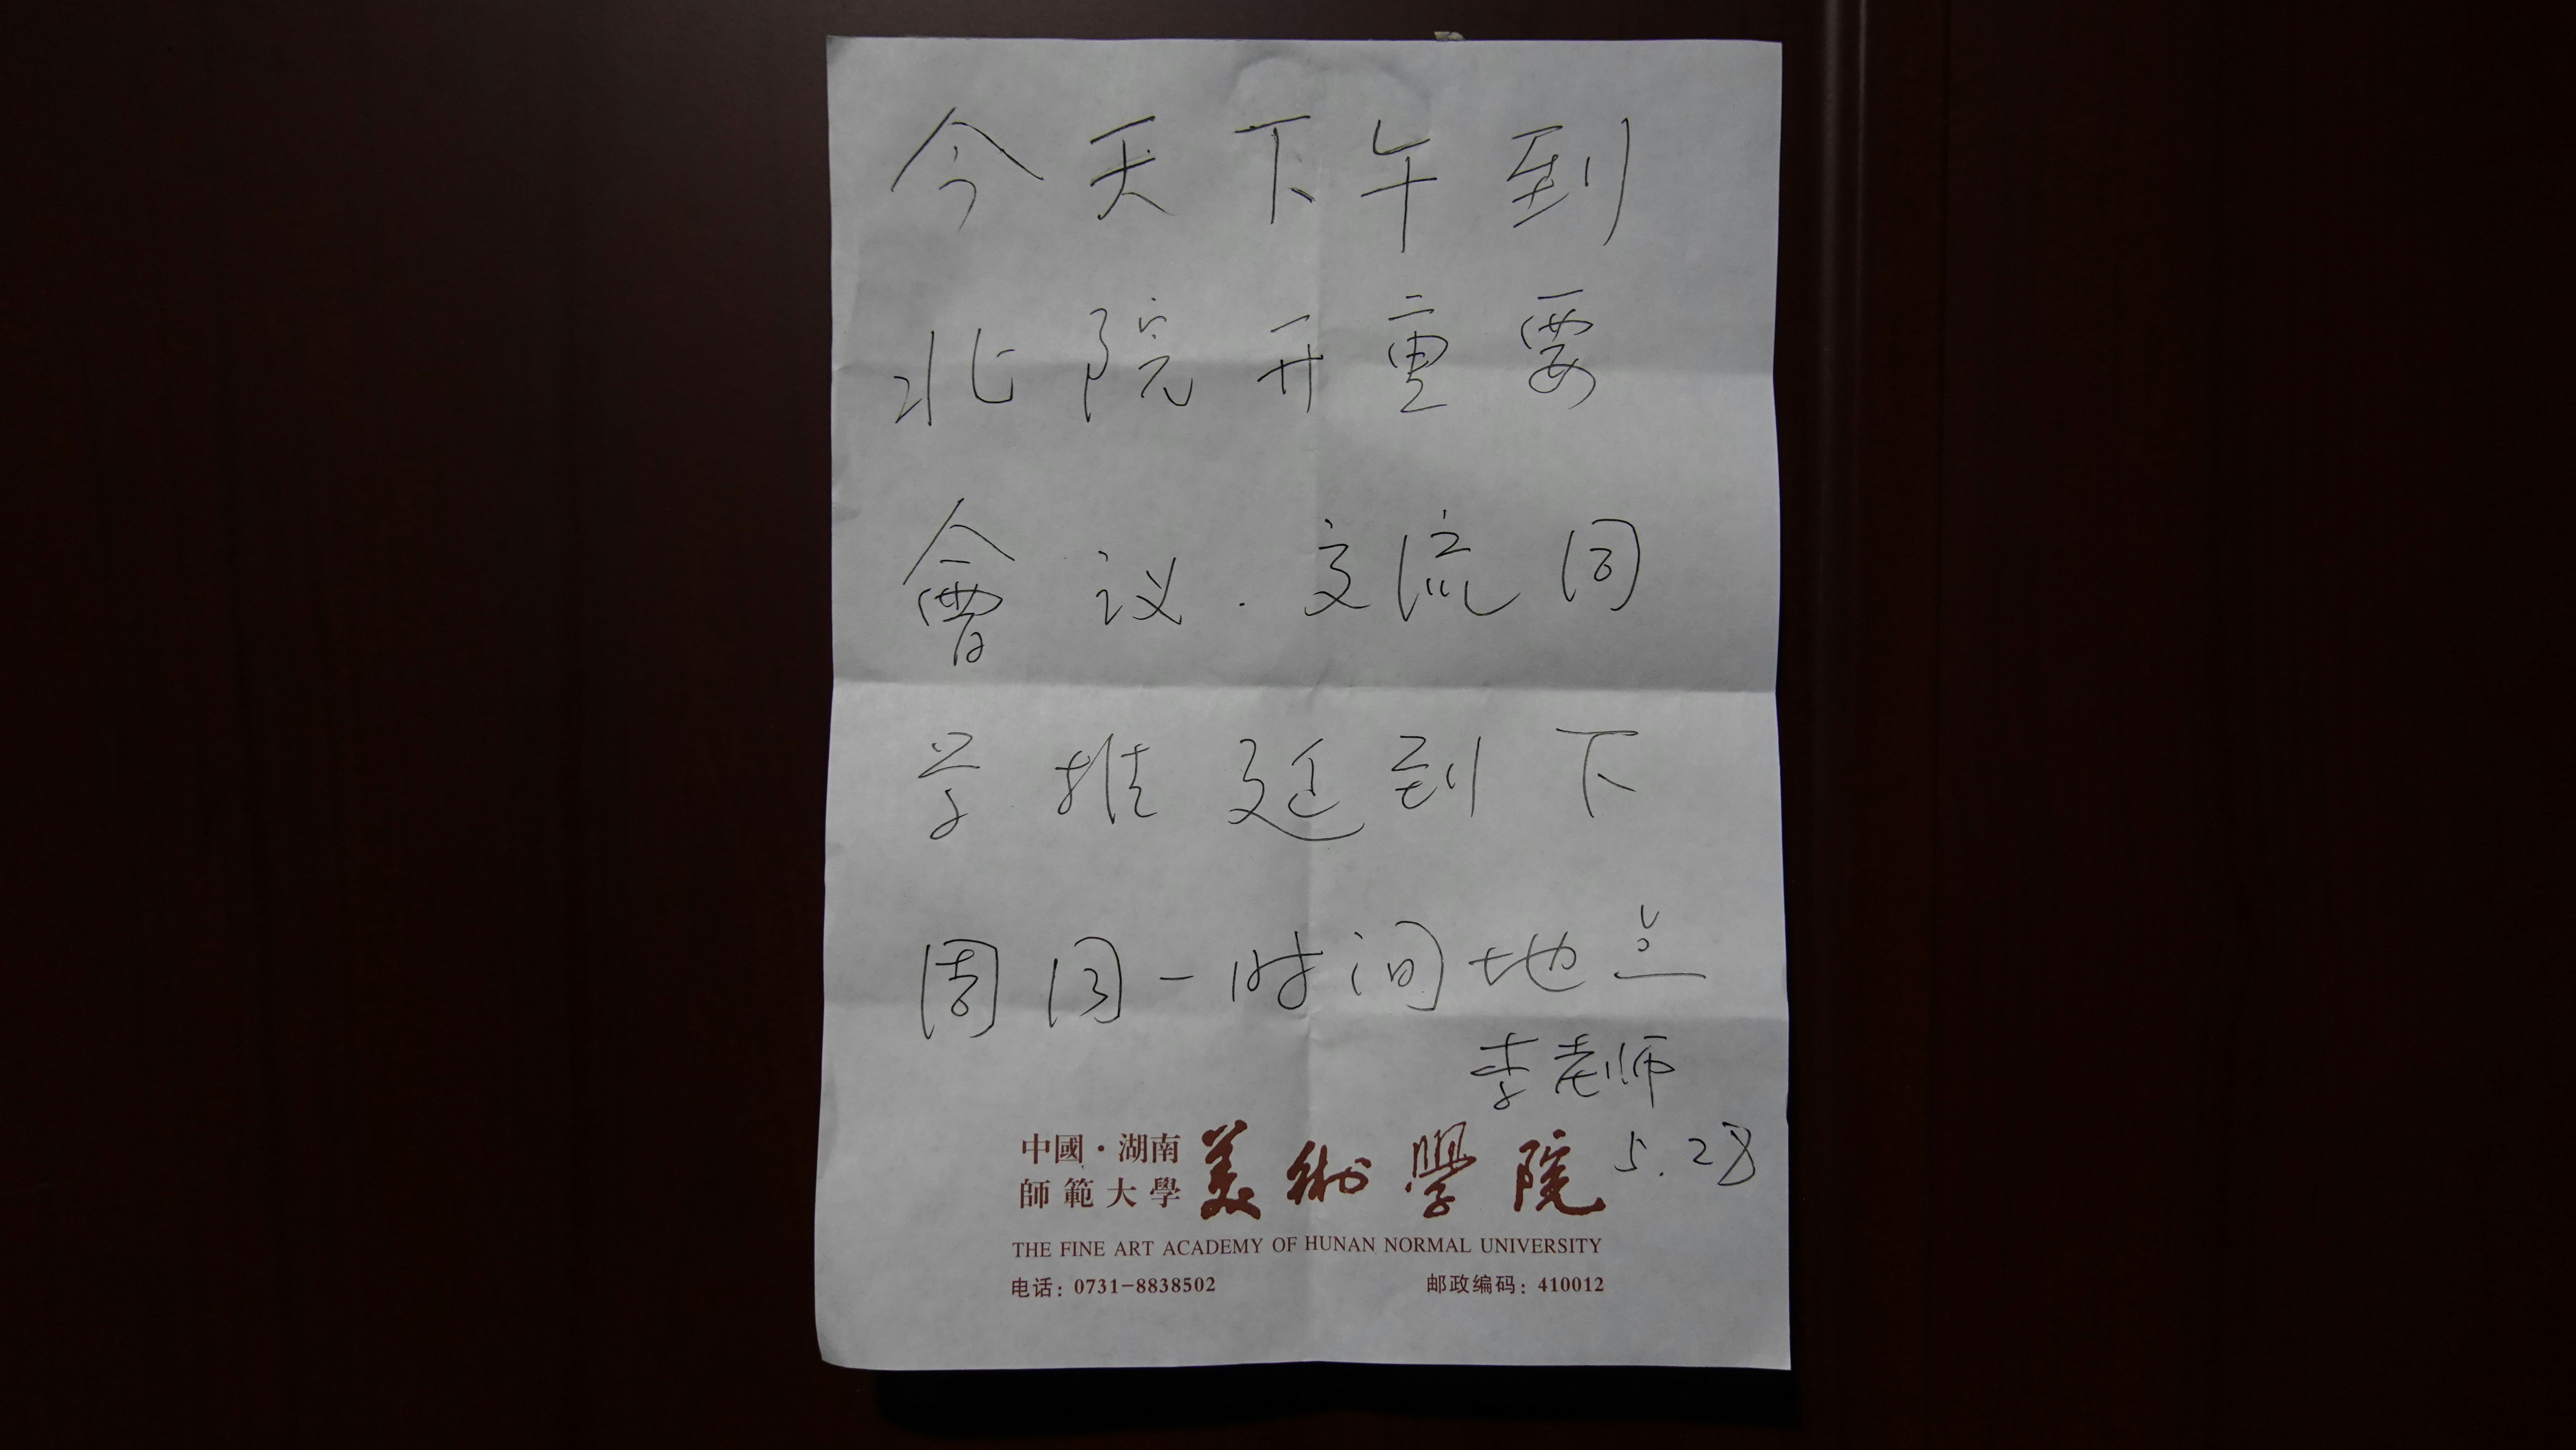 今天下午到
北院开重要
會议.交流同
学推延到下
周同一时间地点
李老师
5.28
中國·湖南
師範大學
美術學院
THE FINE ART ACADEMY OF HUNAN NORMAL UNIVERSITY
电话：0731-8838502 邮政编码：410012